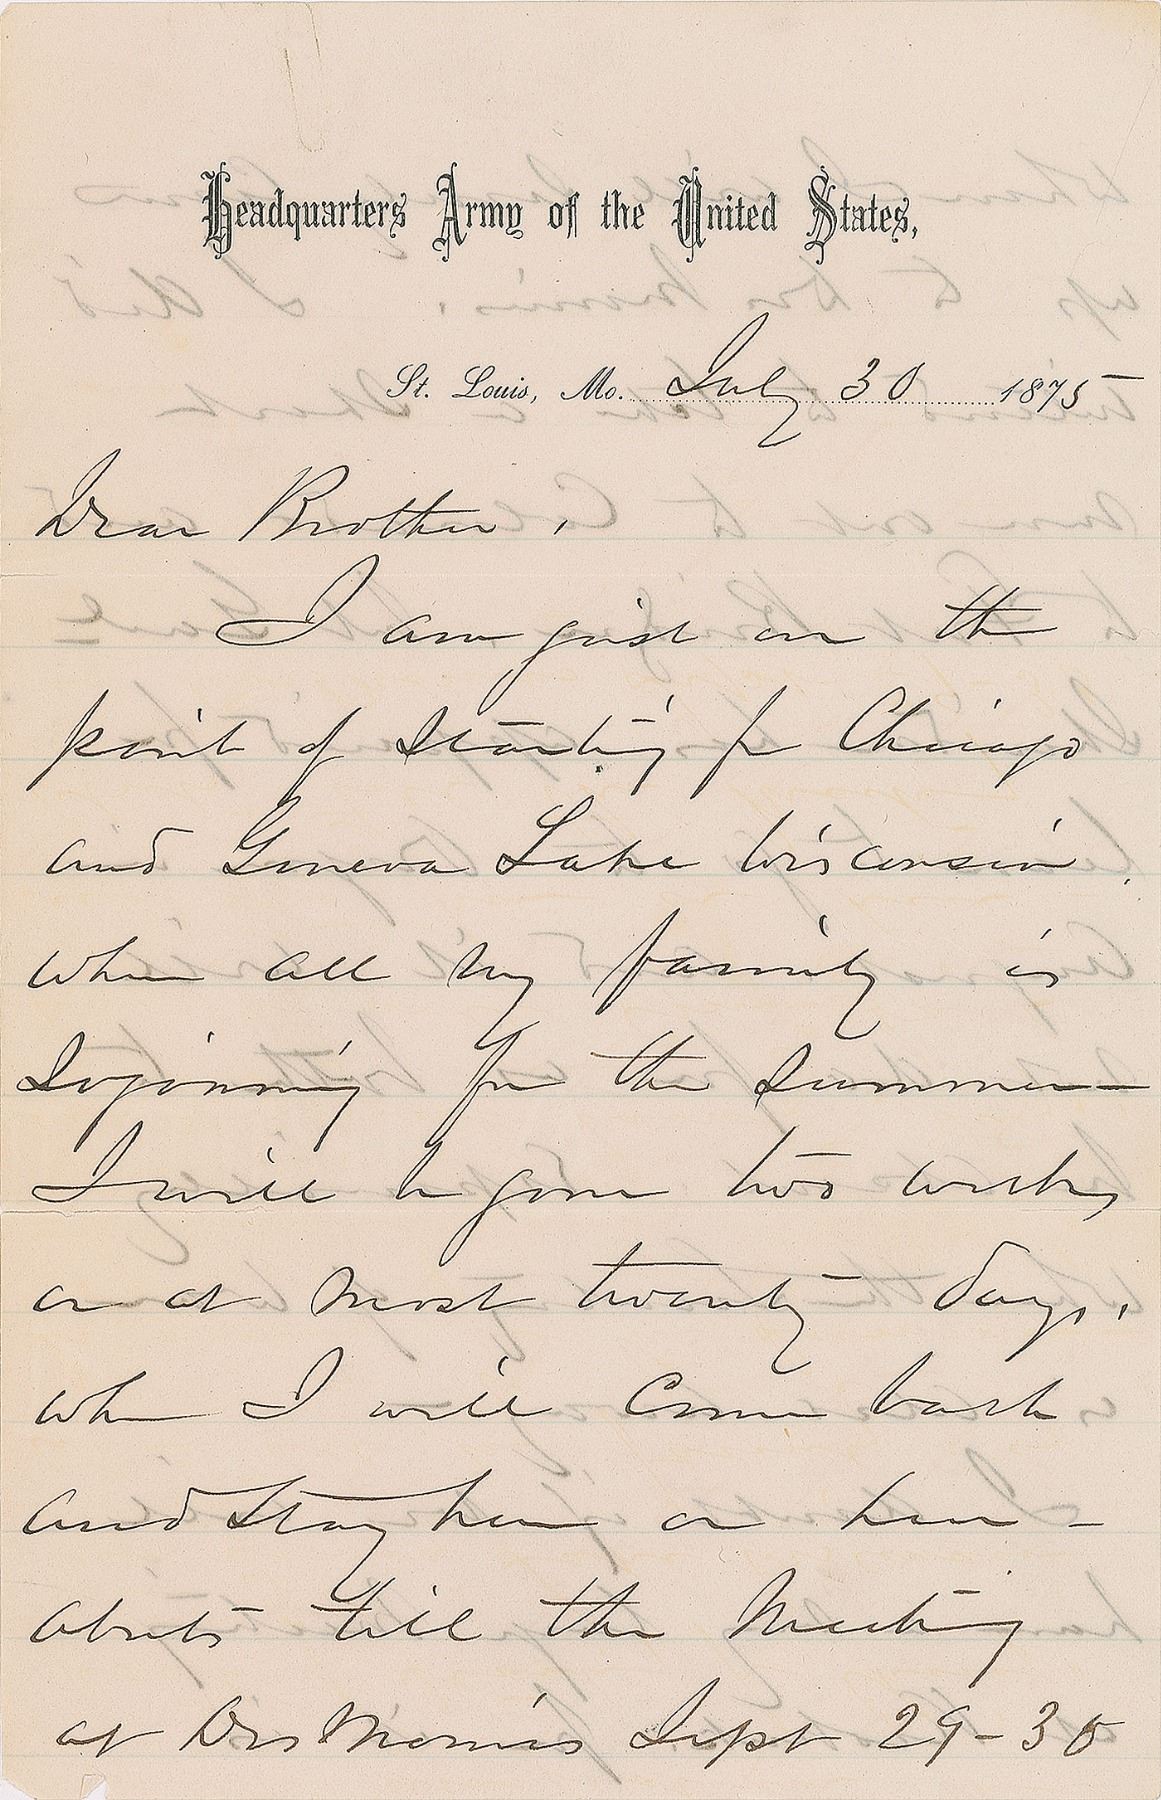 Headquarters Army of the United States,
St. Louis, Mo. July 30 1875
Dear Brother,
I am just on the
point of starting for Chicago
and Geneva Lake Wisconsin,
where all my family is
Sojourning for the summer—
I will be gone two weeks,
or at most twenty days,
when I will come back
and stay here or here-
abouts till the Meeting
at Des Moines Sept 29-30